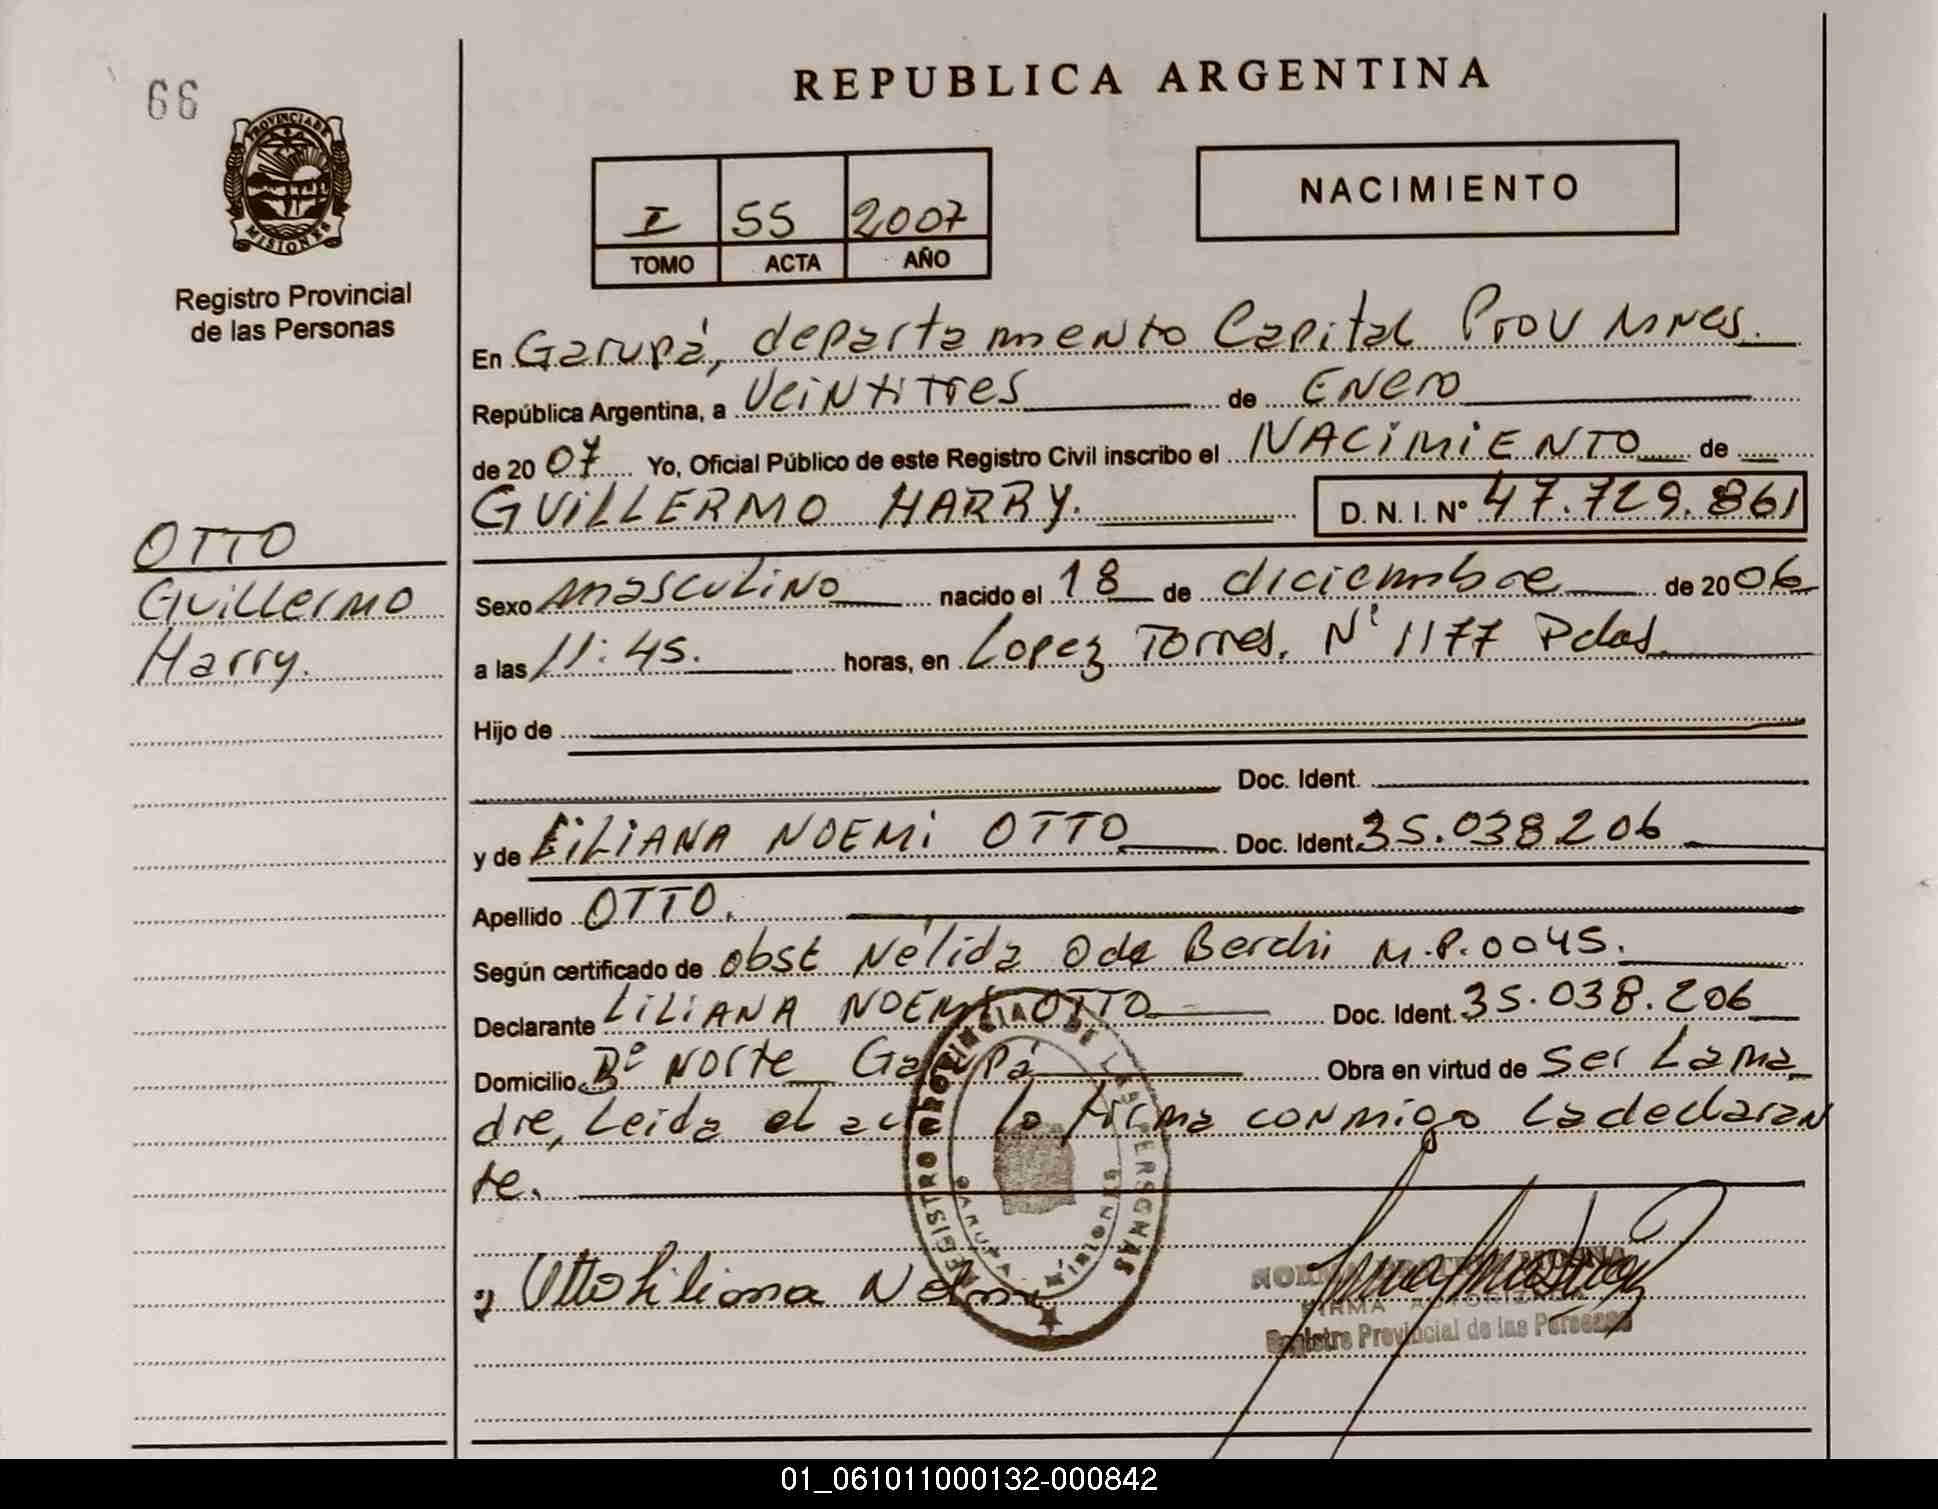 66
PROVINCIA DE
MISIONES
Registro Provincial
de las Personas
OTTO
Guillermo
Harry.
REPUBLICA ARGENTINA
I 55 2007
TOMO ACTA AÑO
NACIMIENTO
En Garupá, departamento Capital Prov Mnes.
República Argentina, a Veintitres de Enero
de 2007 Yo, Oficial Público de este Registro Civil inscribo el NACIMIENTO de
GUILLERMO HARRY. D. N. I. Nº 47.729.861
Sexo masculino nacido el 18 de diciembre de 2006
a las 11:45. horas, en Lopez Torres. Nº 1177 Pdas.
Hijo de
Doc. Ident.
y de LILIANA NOEMI OTTO Doc. Ident. 35.038206
Apellido OTTO.
Según certificado de obst Nélida O de Berchi M.P.0045.
Declarante LILIANA NOEMI OTTO Doc. Ident. 35.038.206
Domicilio Bº NORTE Garupá Obra en virtud de ser La ma
dre, Leida el acta lo firma conmigo La declaran
te.
Otto Liliana
REGISTRO PROVINCIAL DE LAS PERSONAS
GARUPA MISIONES
NORMA
FIRMA AUTORIZADA
Registro Provincial de las Personas
01_061011000132-000842